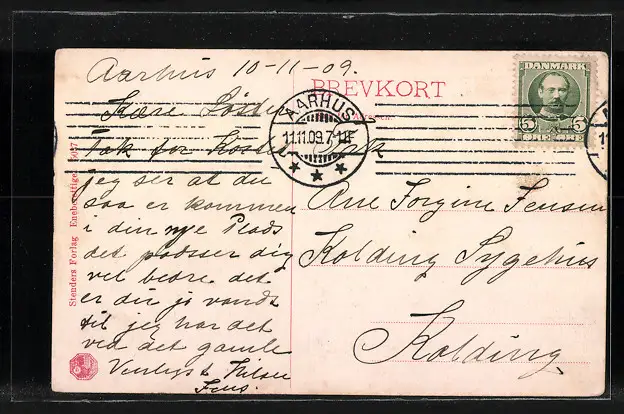 Aarhus 10-11-09.
BREVKORT
DANMARK
5 5
AARHUS
11.11.09. 7-12F
Kære Søster
Tak for Kortet
jeg ser at du
saa er kommen
i din nye Plads
det passer dig
vel bedre det
er du jo vandt
til jeg har det
ved det gamle
Venligst Hilsen
Jens.
Frk
Ane Jorgine Jensen
Kolding Sygehus
Kolding
Stenders Forlag Eneberettiget